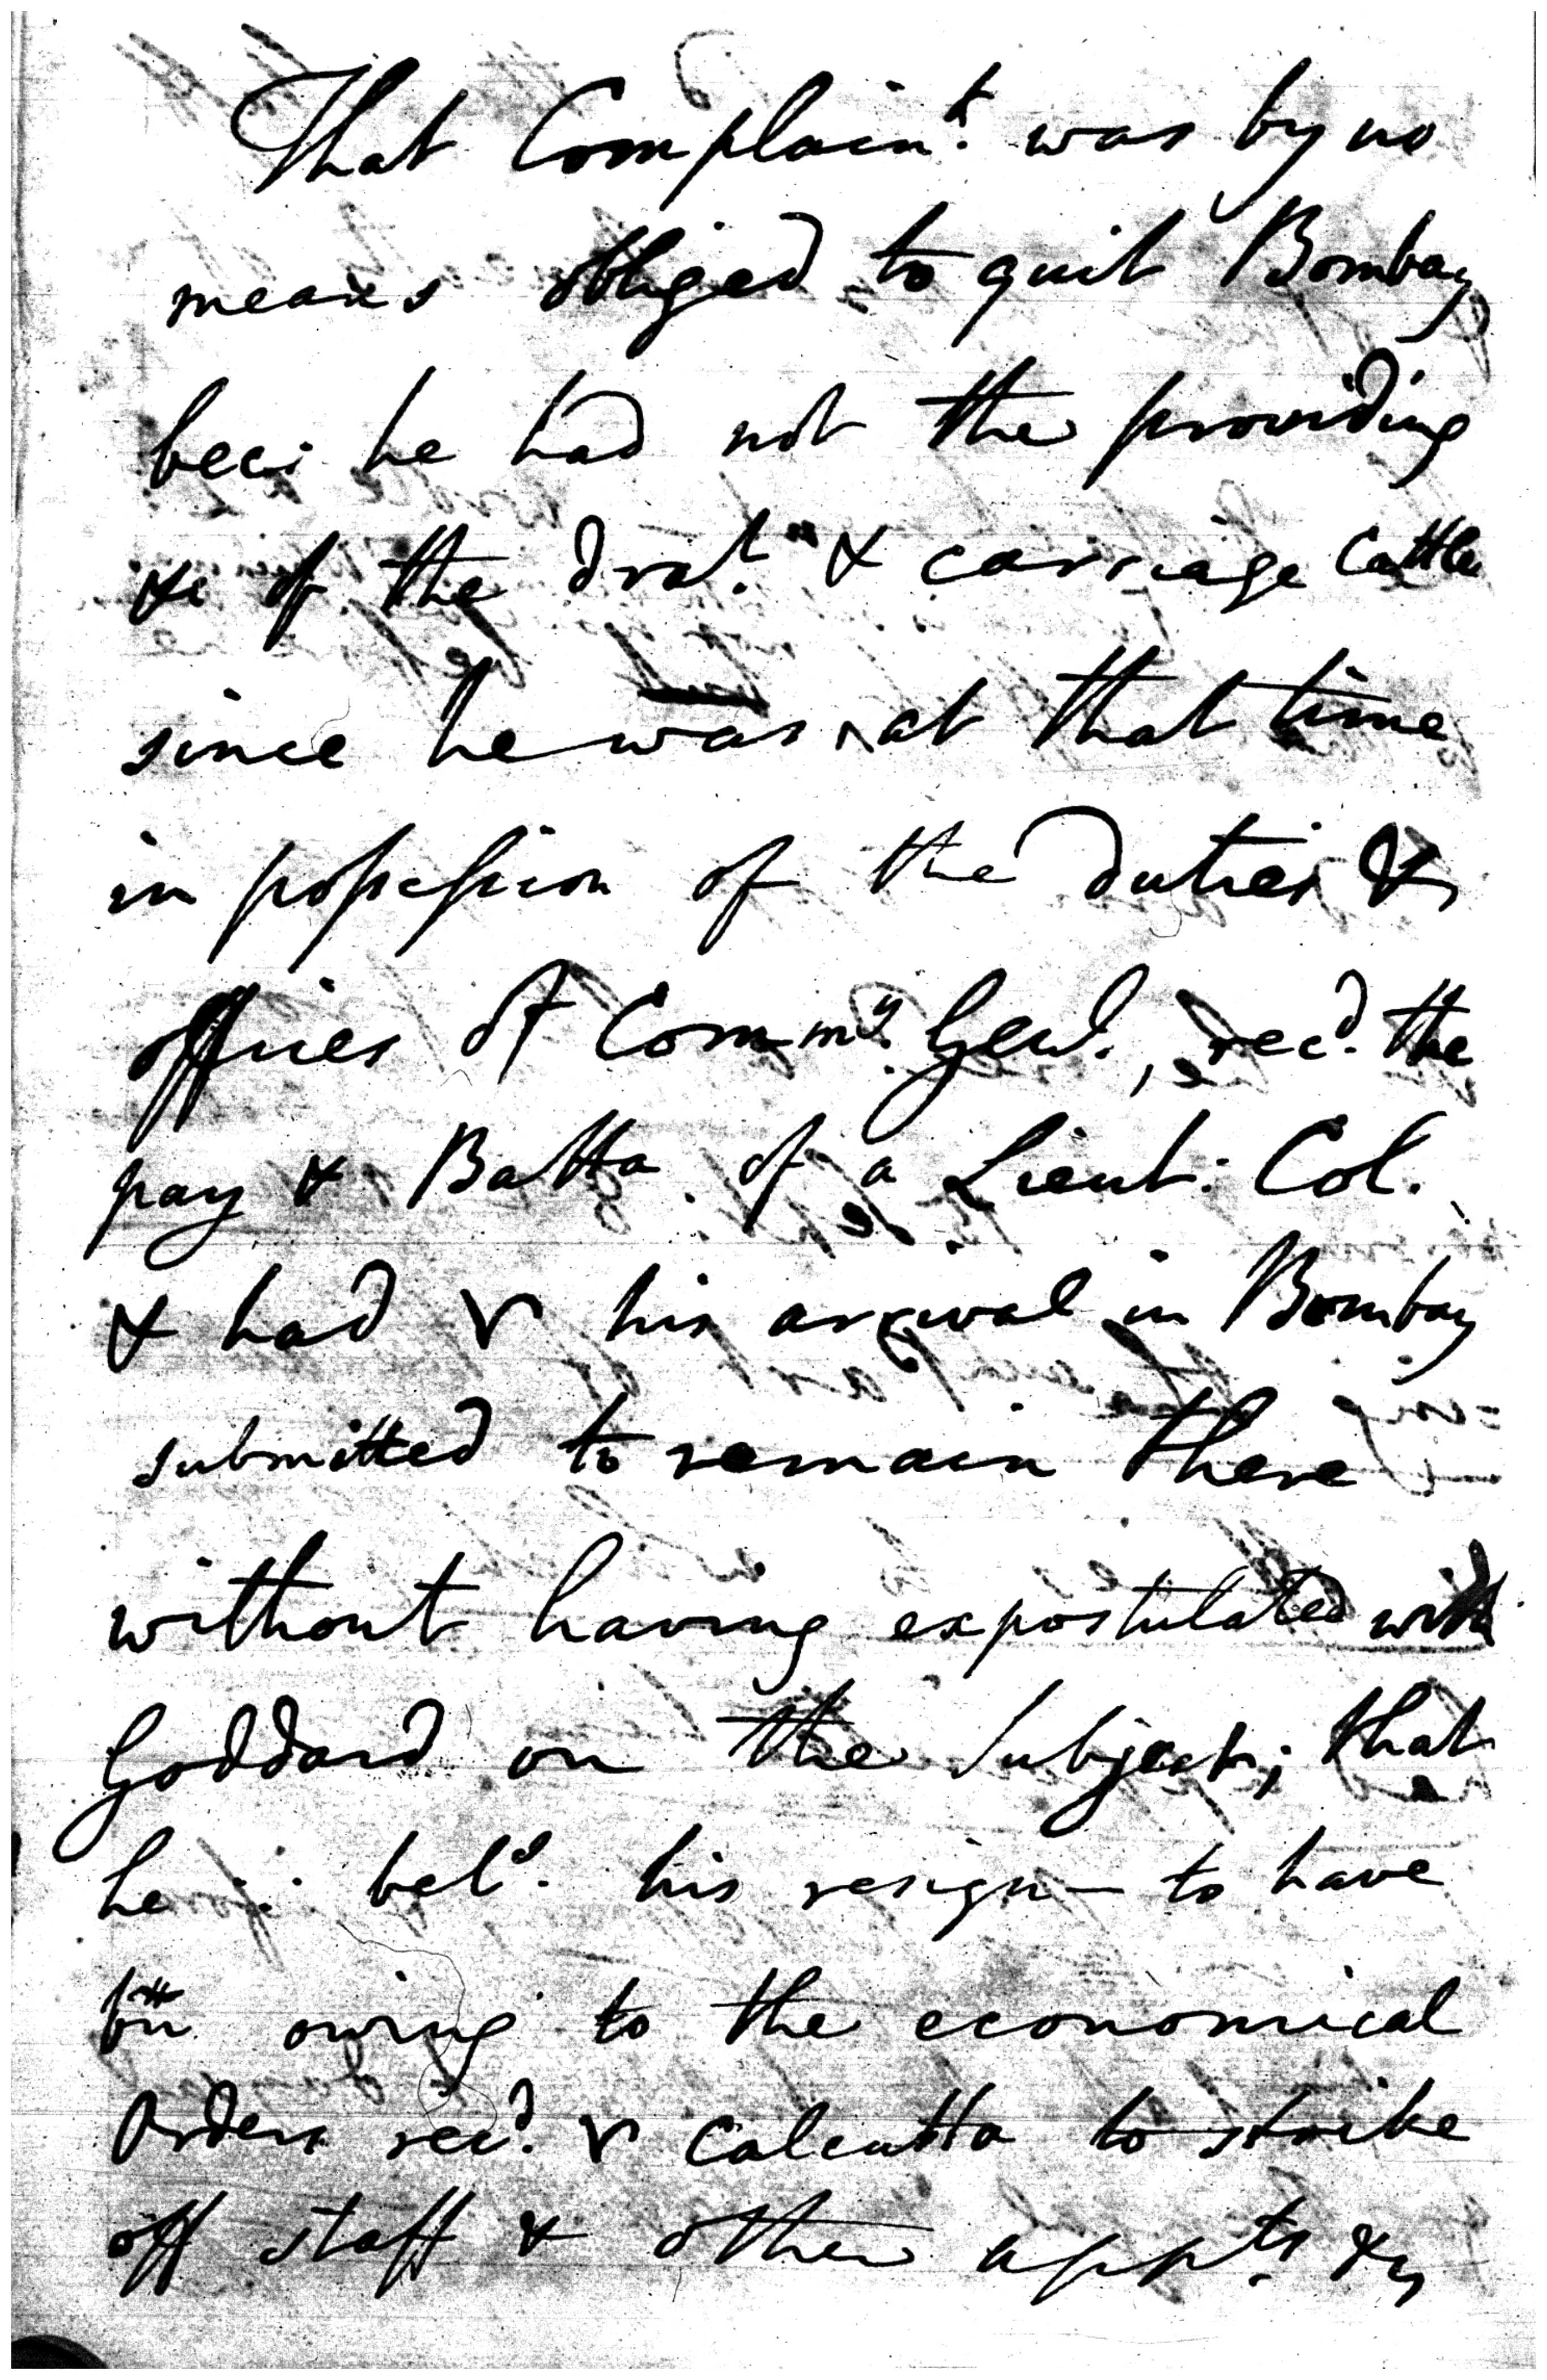 That Complain.t was by no
means obliged to quit Bombay
bec: he had not the providing
&c of the drat. & carriage Cattle
since he was at that time
in possession of the duties &
offices of Comm.y Genl., rec.d the
pay & Batta of a Lieut: Col.
& had his arrival in Bombay
submitted to remain there
without having expostulated with
Goddard on the Subject; that
he bel.d his resign— to have
bn owing to the economical
Orders rec.d Calcutta to strike
off staff & other app.ts &